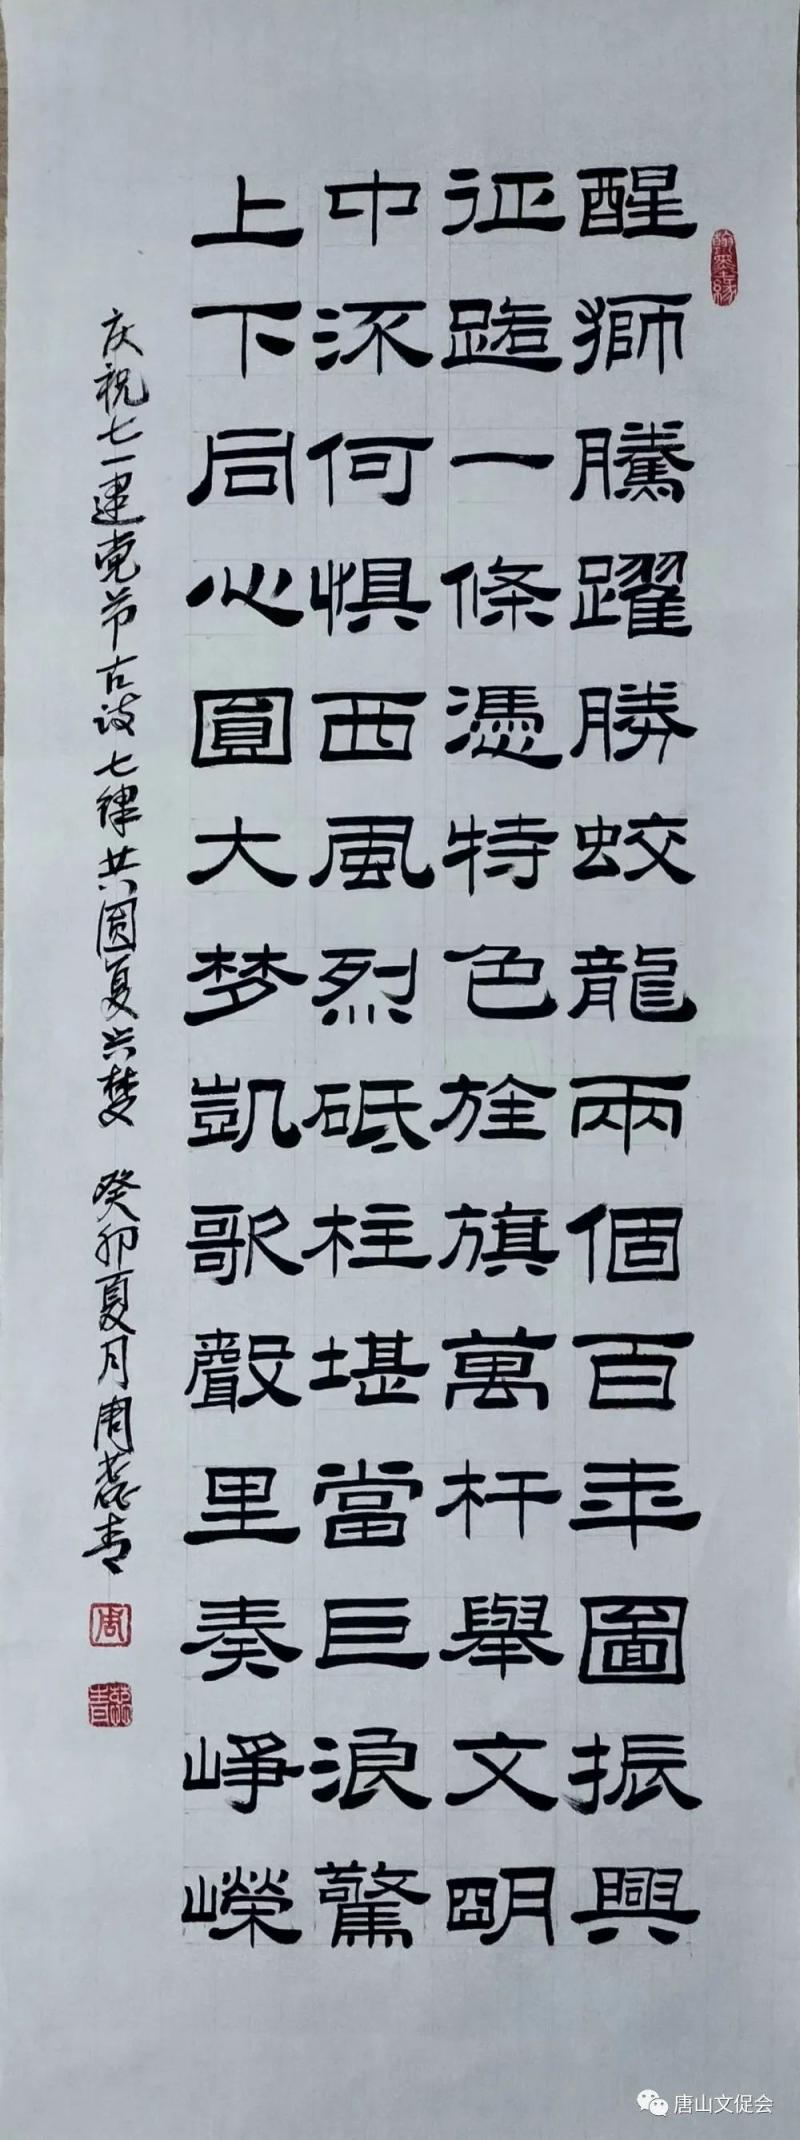 翰墨缘
醒獅騰躍勝蛟龍兩個百年圖振興
征踏一條憑特色旌旗萬杆舉文明
中流何惧西風烈砥柱堪當巨浪驚
上下同心圓大梦凱歌聲里奏崢嶸
庆祝七一建党节古诗七律共圆复兴梦 癸卯夏月周蕊青
周
蕊青
唐山文促会